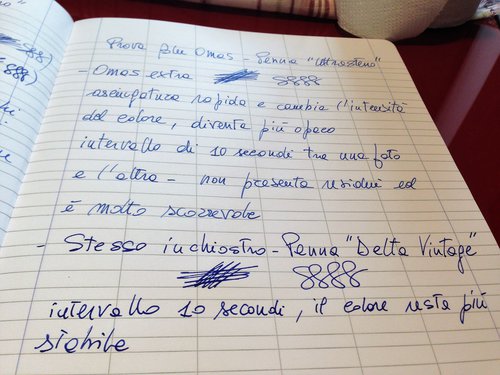 Prova blu Omas - Penna "Ultrasteno"
- Omas extra 8888
asciugatura rapida e cambia l'intensità
del colore, diventa più opaco
intervallo di 10 secondi tra una foto
e l'altra - non presenta residui ed
è molto scorrevole
- Stesso inchiostro - Penna "Delta Vintage"
8888
intervallo 10 secondi, il colore resta più
stabile
888)
888)